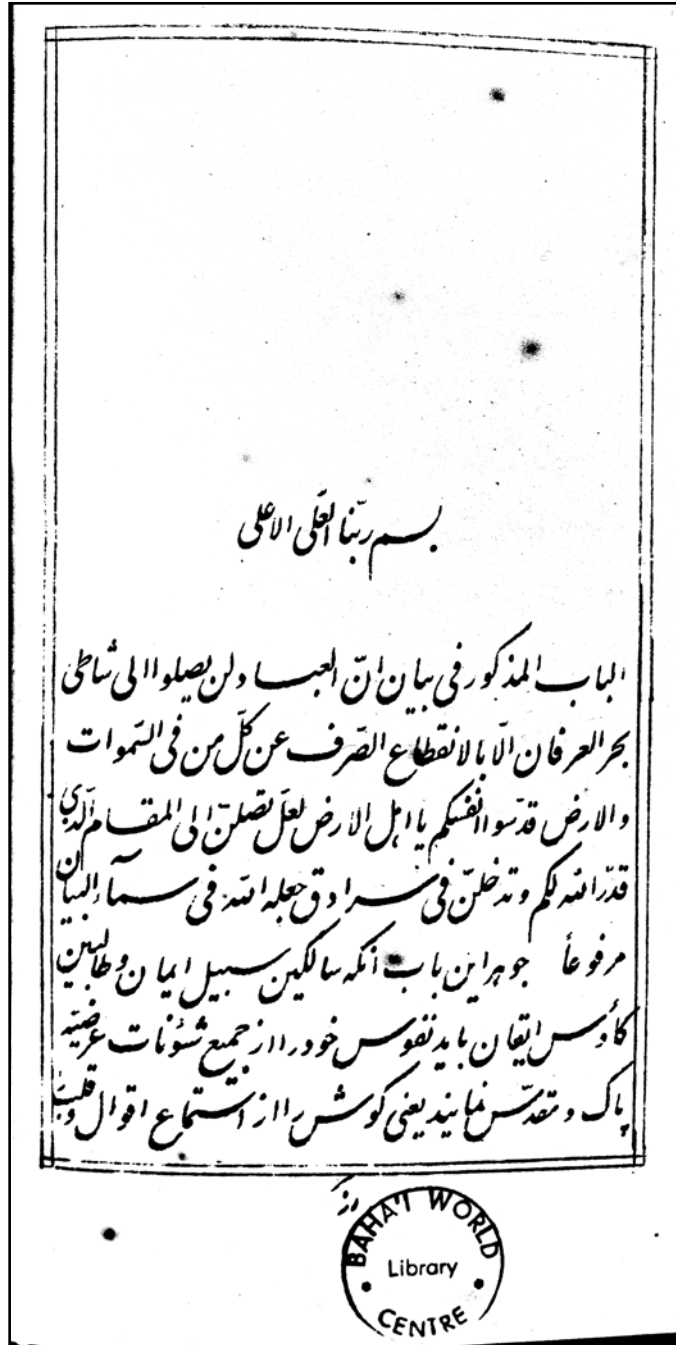 بسم ربّنا العلّی الاعلی
الباب المذکور فی بیان انّ العباد لن یصلوا الی شاطی
بحر العرفان الّا بالانقطاع الصّرف عن کلّ من فی السّموات
والارض قدّسوا انفسکم یا اهل الارض لعلّ تصلنّ الی المقام الّذی
قدّر الله لکم و تدخلنّ فی سرادق جعله الله فی سمآء البیان
مرفوعاً جوهر این باب آنکه سالکین سبیل ایمان و طالبین
کأوس ایقان باید نفوس خود را از جمیع شئونات عرضیّه
پاک و مقدّس نمایند یعنی کوش را از استماع اقوال و قلب
را از
BAHA'I WORLD
Library
CENTRE